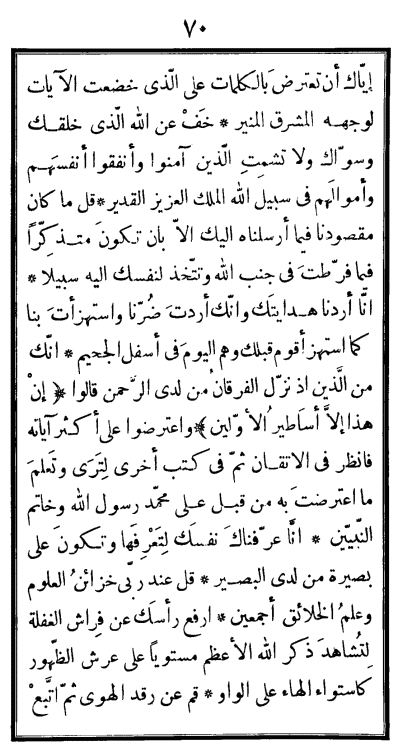 ٧٠
إيّاك أن تعترضَ بالكلمات على الّذى خضعت الآيات
لوجهه المشرق المنير * خَفْ عن الله الّذى خلقك
وسوّاك ولا تشمتِ الّذين آمنوا وأنفقوا أنفسَهم
وأموالَهم فى سبيل الله الملك العزيز القدير * قل ما كان
مقصودنا فيما أرسلناه اليك الاّ بان تكونَ متذكّراً
فيما فرّطتَ فى جنب الله وتتّخذ لنفسك اليه سبيلا *
انّا أردنا هدايتَك وانّك أردتَ ضُرّنا واستهزأتَ بنا
كما استهزأ قوم قبلك وهم اليومَ فى أسفل الجحيم * انّك
من الَّذين اذ نزّل الفرقانُ من لدى الرّحمن قالوا ﴿ إنْ
هذا إلاَّ أسَاطيرُ الأوّلين ﴾ واعترضوا على أكثر آياته
فانظر فى الاتقان ثمّ فى كتب أخرى لِتَرَى وتَعلمَ
ما اعترضتَ به من قبل على محمّد رسول الله وخاتم
النّبيّين * انّا عرّفناكَ نفسَك لِتَعْرِفَها وتكونَ على
بصيرة من لدى البصير * قل عند ربّى خزائنُ العلوم
وعلمُ الخلائق أجمعين * ارفع رأسَك عن فِراش الغفلة
لِتُشاهدَ ذكر الله الأعظم مستوياً على عرش الظّهور
كاستواء الهاء على الواو * قم عن رقد الهوى ثمّ اتَّبعْ